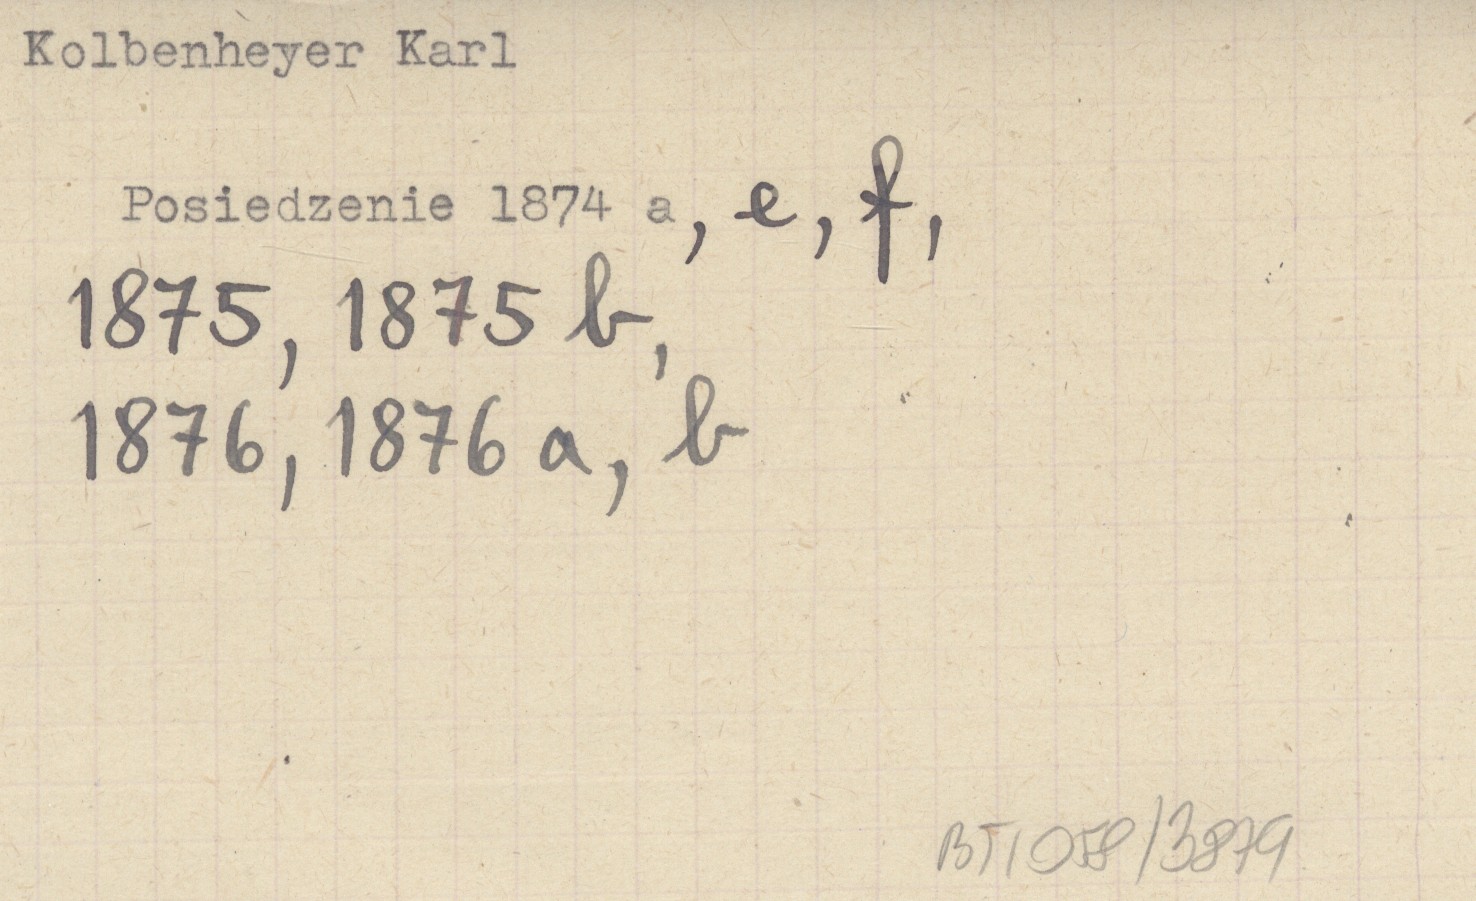 Kolbenheyer Karl
Posiedzenie 1874 a, e, f,
1875, 1875 b,
1876, 1876 a, b
BT1058/3879